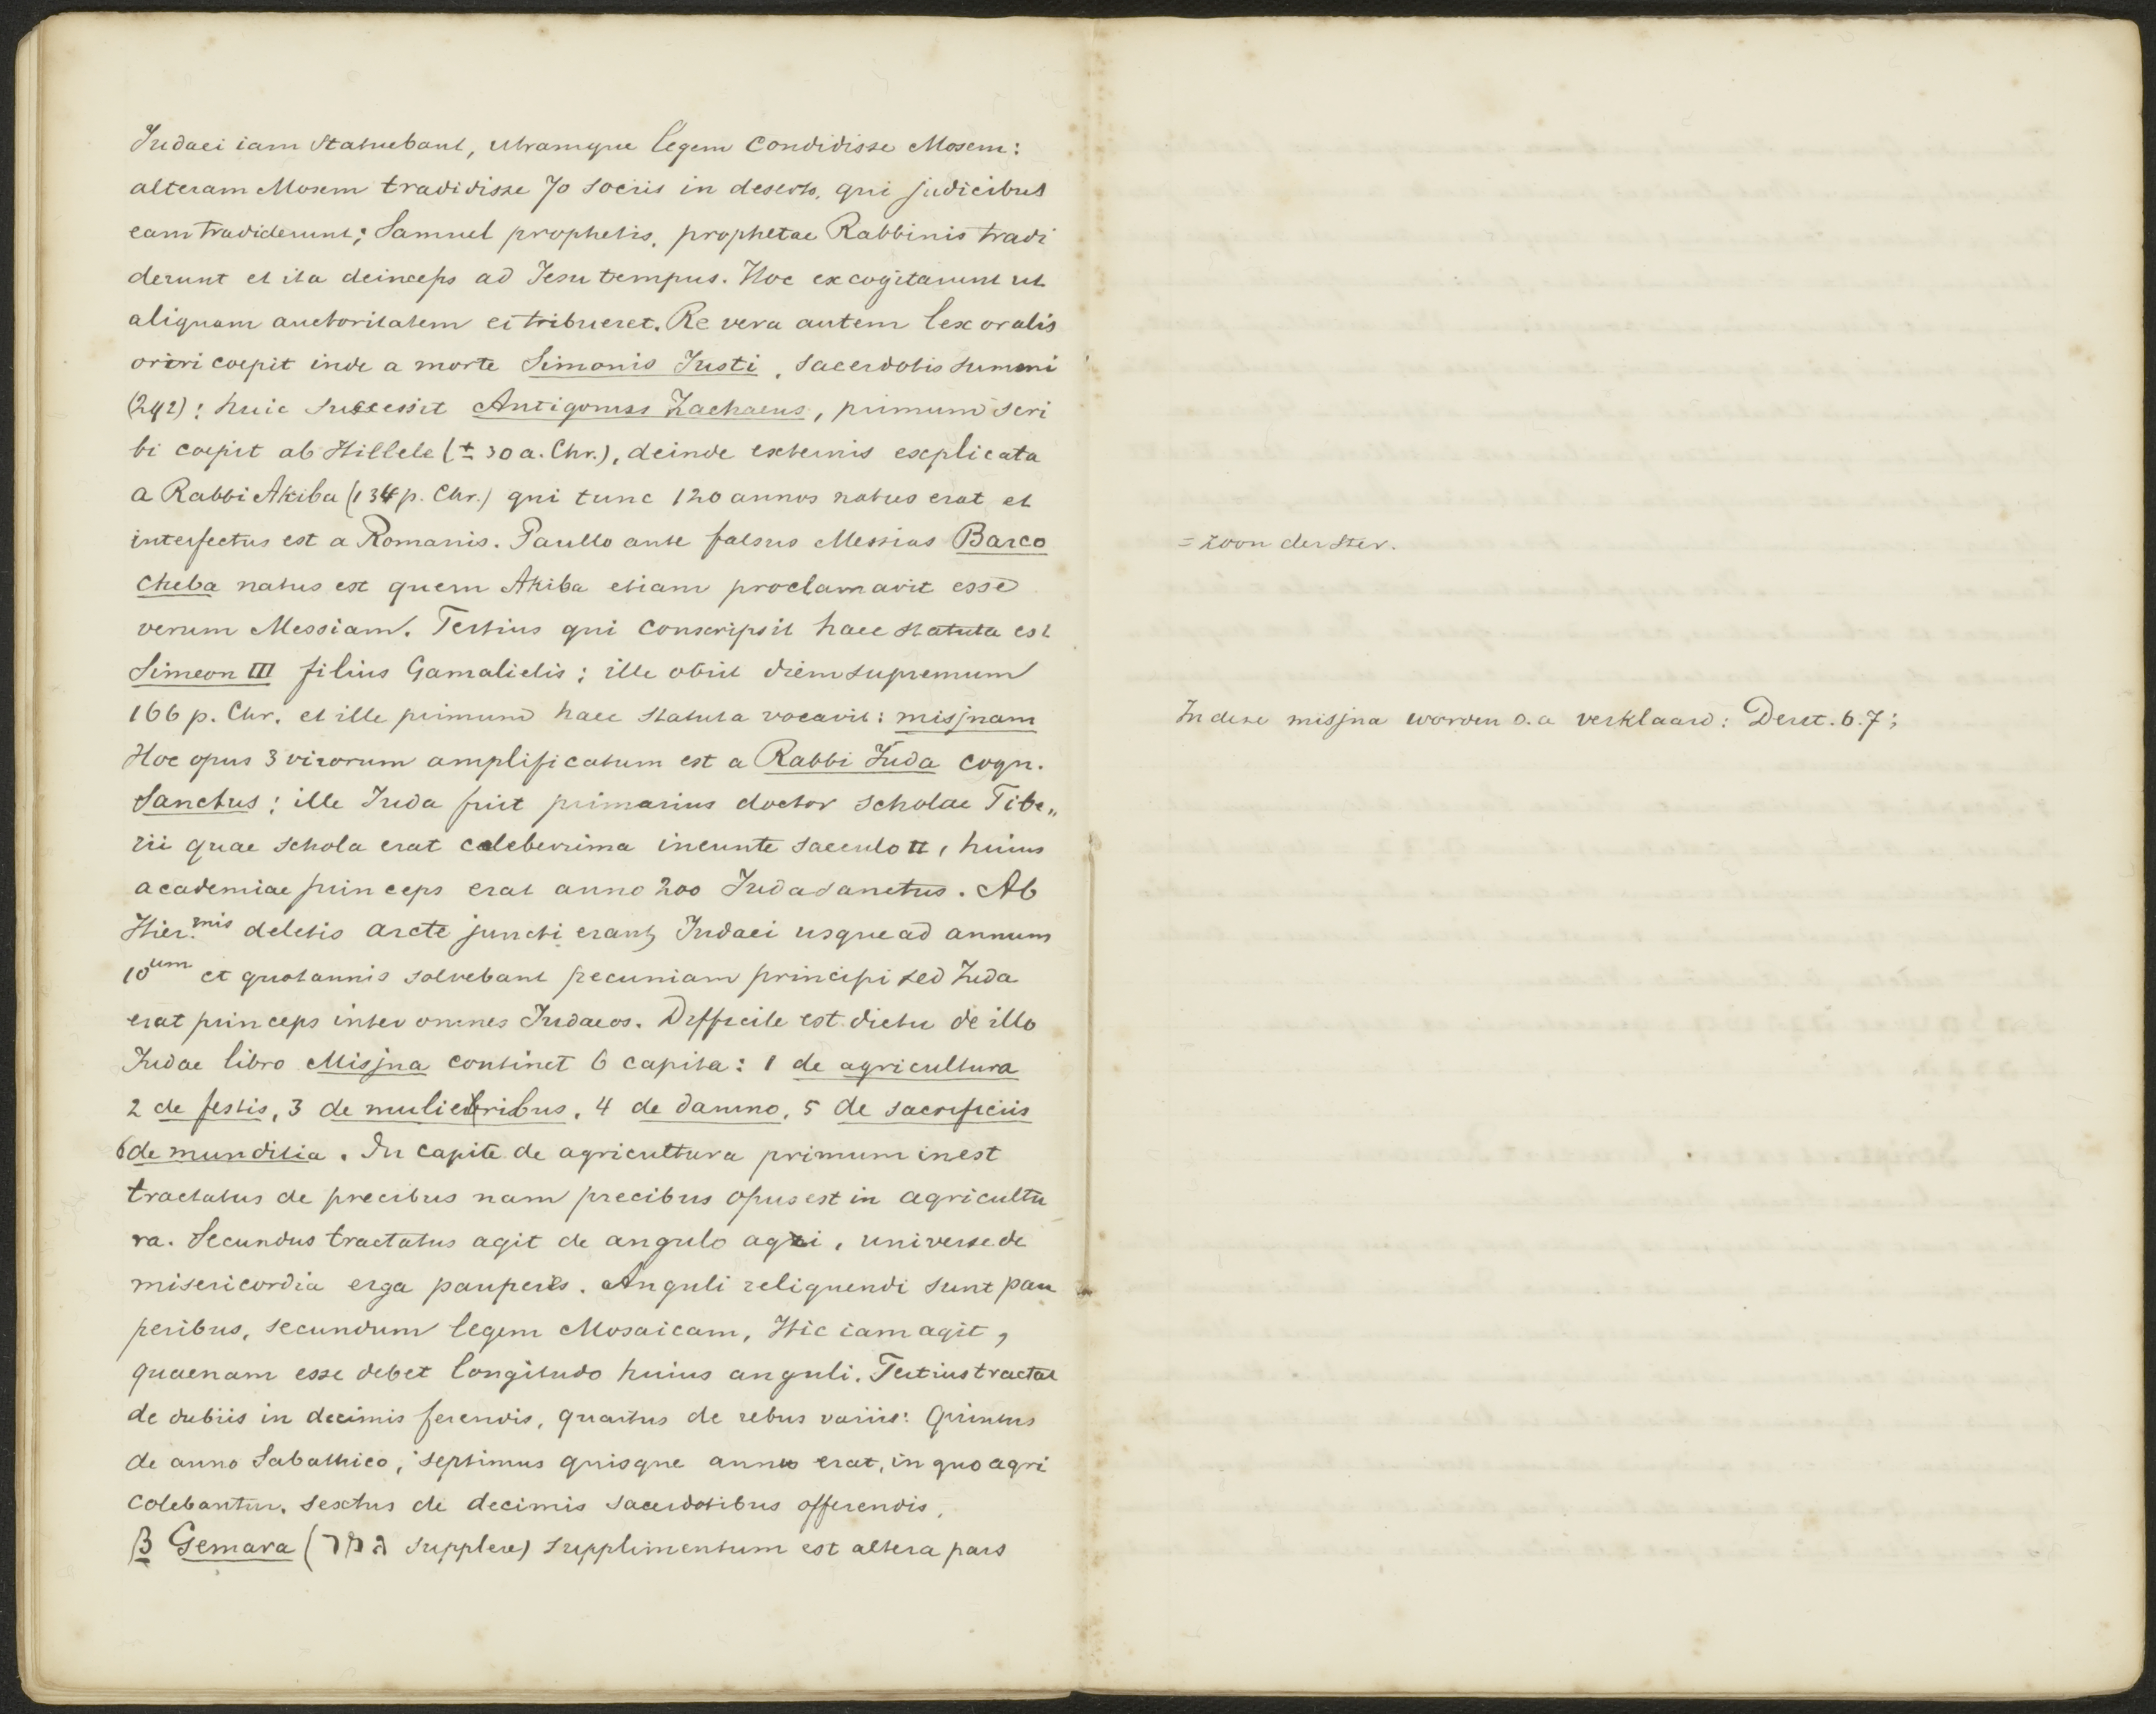 Judaei iam statuebant, utramque legem condidisse Mosem:
alteram Mosem tradidisse 70 sociis in deserto, qui judicibus
eam tradiderunt; Samuel prophetis, prophetae Rabbinis tradi
derunt et ita deinceps ad Jesu tempus. Hoc excogitarunt ut
aliquam auctoritatem ei tribueret. Re vera autem lex oralis
oriri coepit inde a morte Simonis Justi, sacerdotis summi
(292): huic successit Antigonus Zachaeus, primum scri
bi coepit ab Hillele (± 30 a. Chr.), deinde externis explicata
a Rabbi Akiba (134 p. Chr.) qui tunc 120 annos natus erat et
interfectus est a Romanis. Paullo ante falsus Messias Barco
cheba natus est quem Akiba etiam proclamavit esse
= zoon der ster.
verum Messiam. Tertius qui conscripsit haec statuta est
Simeon III filius Gamalielis; ille obiit diem supremum
166 p. Chr. et ille primum haec statuta vocavit: misjnam
In deze misjna worden o.a verklaard: Deut. 6.7;
Hoc opus 3 virorum amplificatum est a Rabbi Juda cogn.
Sanctus; ille Juda fuit primarius doctor scholae Tibe„
rii quae schola erat celeberrima ineunte saeculo II, huius
academiae princeps erat anno 200 Juda sanctus. Ab
Hier.mis deletis arcte juncti erant Judaei usque ad annum
10um et quotannis solvebant pecuniam principi sed Juda
erat princeps inter omnes Judaeos. Difficile est dictu de illo
Judae libro Misjna continet 6 capita: 1 de agricultura
2 de festis, 3 de mulieribus, 4 de damno, 5 de sacrificiis
6 de munditia. In capite de agricultura primum inest
tractatus de precibus nam precibus opus est in agricultu
ra. Secundus tractatus agit de angulo agri, universe de
misericordia erga pauperes. Anguli reliquendi sunt pau
peribus, secundum legem Mosaicam, Hic iam agit,
quaenam esse debet longitudo huius anguli. Tertius tractat
de dubiis in decimis ferendis, quartus de rebus variis: Quintus
de anno Sabathico, septimus quisque annus erat, in quo agri
colebantur. sextus de decimis sacerdotibus offerendis.
β Gemara (גמר supplere) supplimentum est altera pars